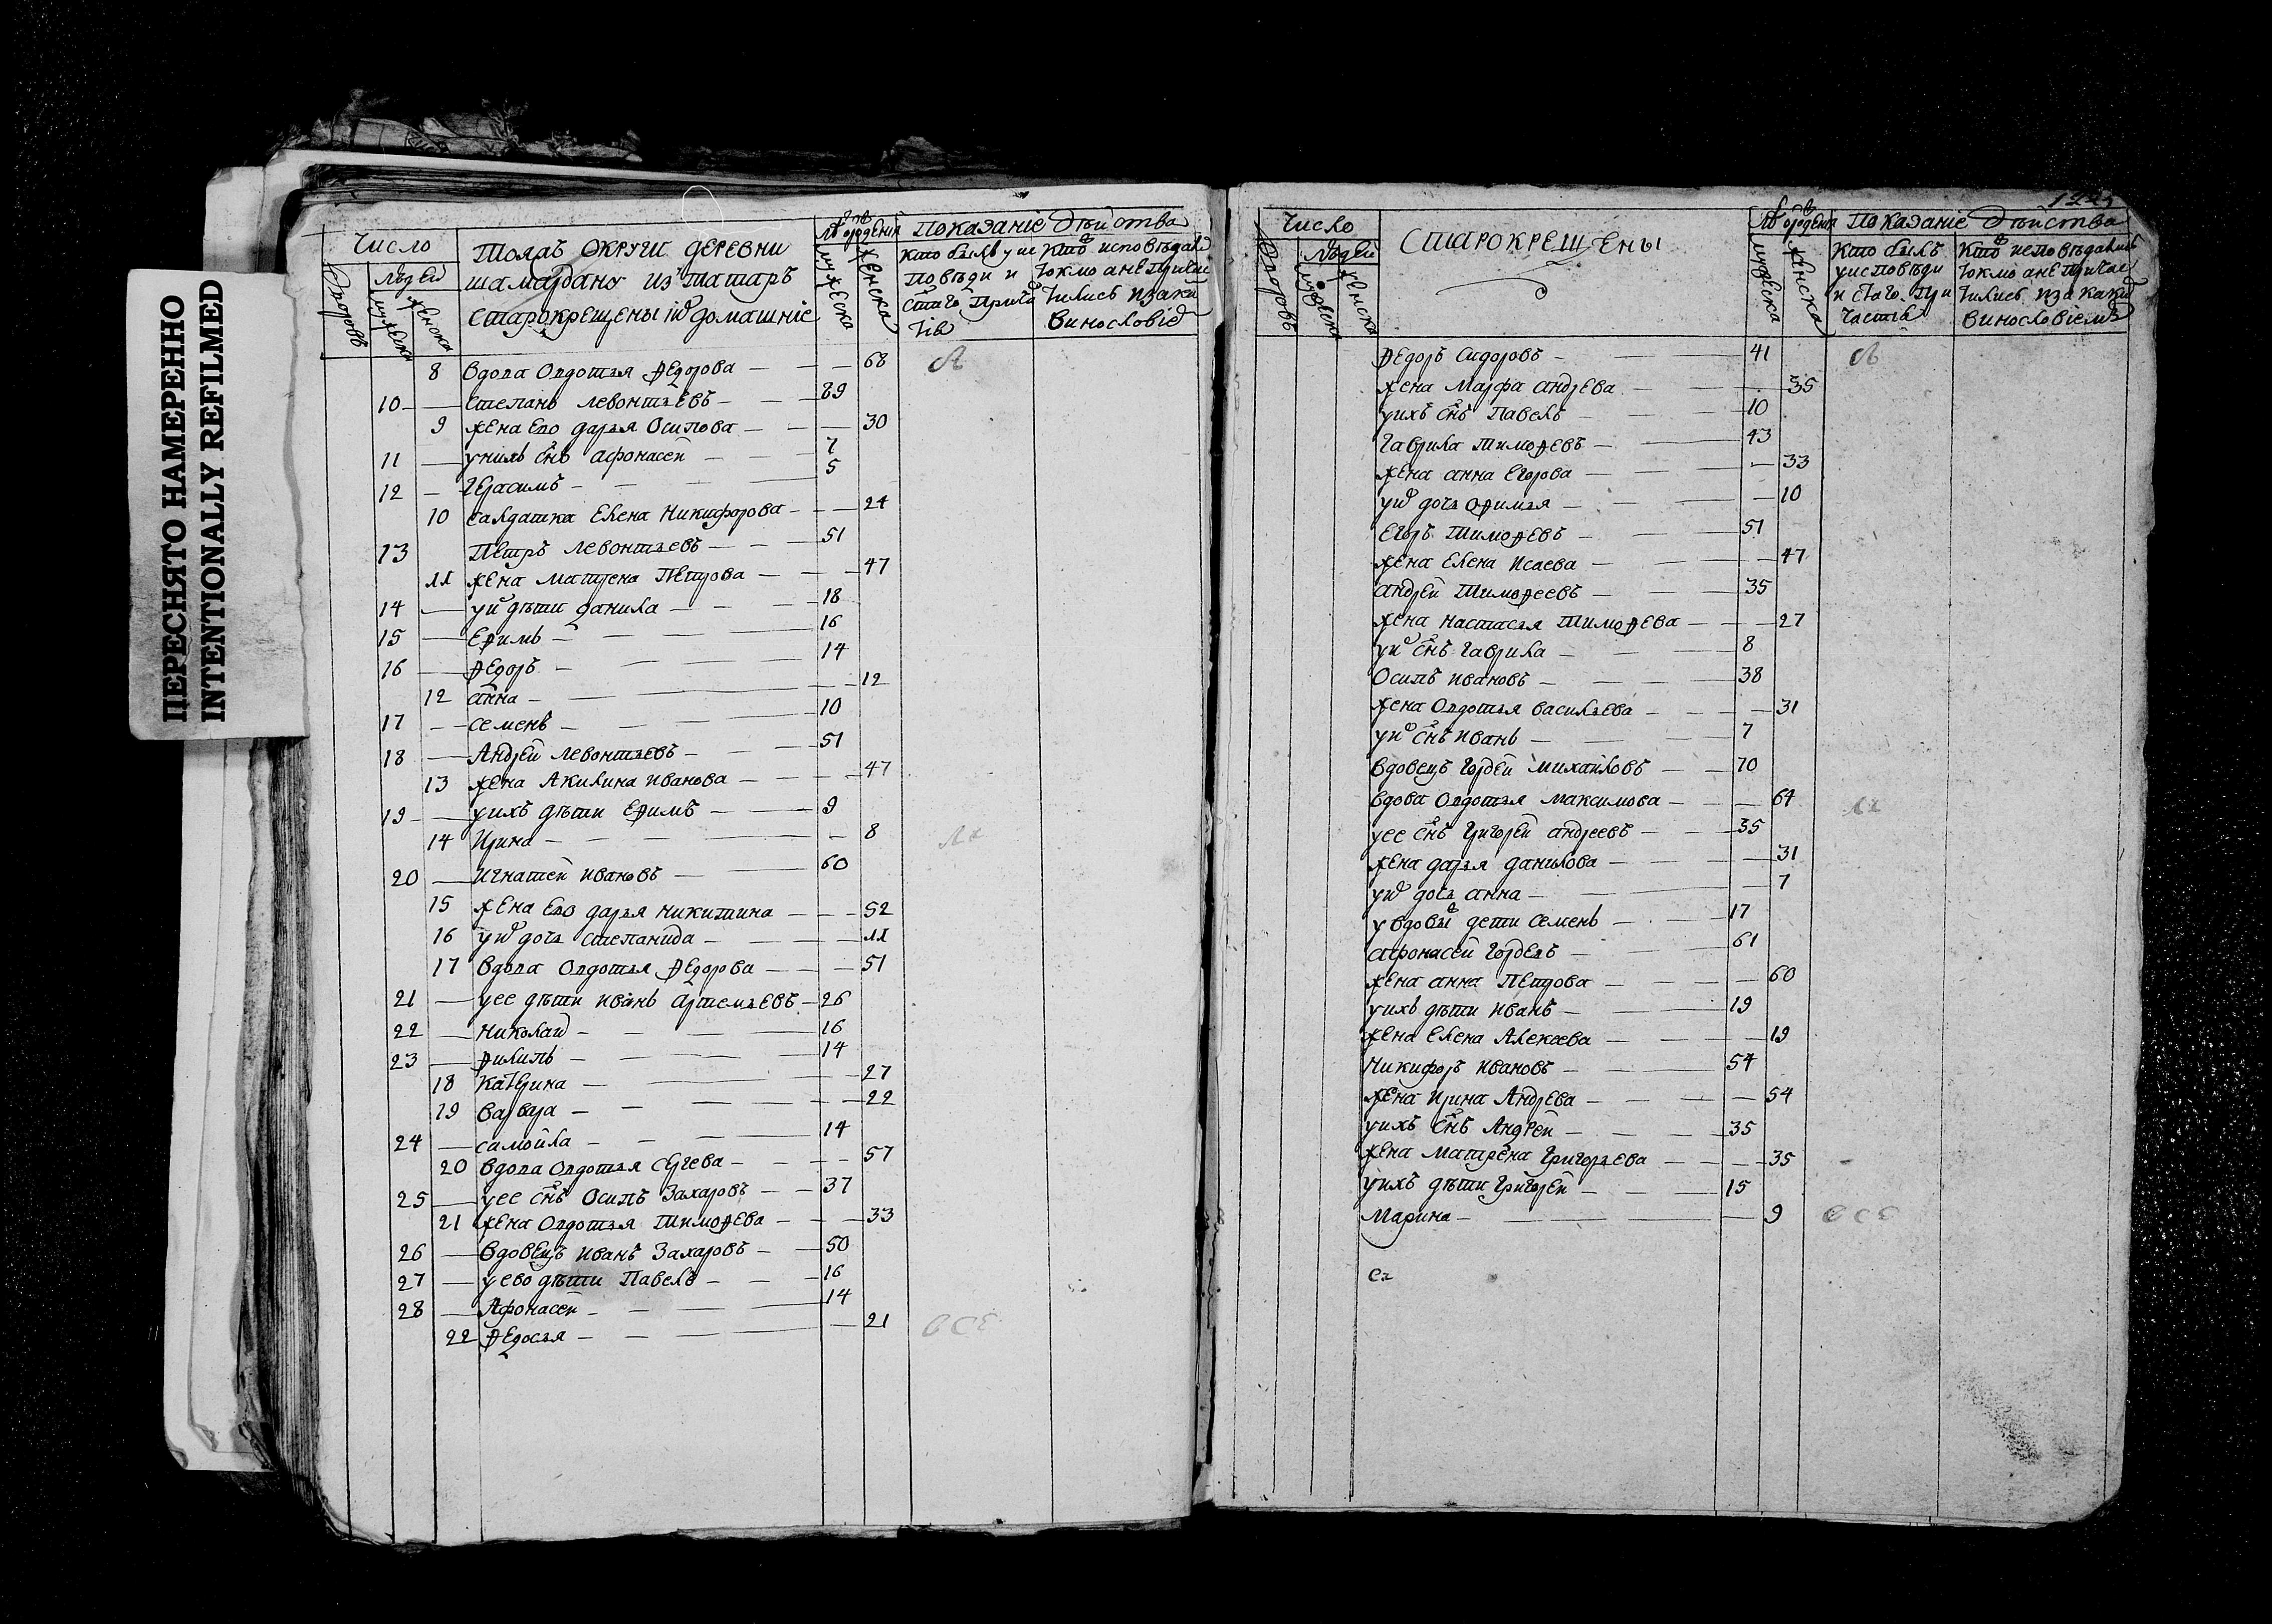 ПЕРЕСНЯТО НАМЕРЕННО
INTENTIONALLY REFILMED
Число
Людей
Дворовъ
мужеска
женска
Толаъ округи деревни
шамардану из татаръ
старокрещены ихъ домашніе
мужеска
женска
Показаніе действа
Кто былъ у ис
повѣди и
Кто исповѣдал
токмо а не причас
тились
винословіе
8 вдова Овдотья Ѳедорова — 68
10 — Степанъ Левонтьевъ — 89
9 жена Ево дарья Осипова — 30
11 — у нихъ снъ афонасей — 7
12 — Герасимъ — 5
10 салдатка Елена Никифорова — 24
13 Петръ левонтьевъ — 51
11 жена матрена Петрова — 47
14 — у их дѣти данила — 18
15 — Еѳимъ — 16
16 — Ѳедоръ — 14
12 анна — 12
17 — семенъ — 10
18 — Андрей левонтьевъ — 51
13 жена Акилина иванова — 47
19 — у ихъ дѣти Еѳимъ — 9
14 Ирина — 8
20 — Игнатей ивановъ — 60
15 жена Ево дарья никитина — 52
16 у их дочь степанида — 11
17 вдова Овдотья Ѳедорова — 51
21 — у ее дѣти иванъ артемьевъ — 26
22 — николай — 16
23 — Ѳилипъ — 14
18 катерина — 27
19 варвара — 22
24 — самойла — 14
20 вдова Овдотья сергева — 57
25 — у ее снъ Осипъ Захаровъ — 37
21 жена Овдотья Тимоѳева — 33
26 — вдовецъ иванъ Захаровъ — 50
27 — у ево дѣти Павелъ — 16
28 — Афонасей — 14
22 Ѳедосья — 21
все
Число
Людей
Дворовъ
мужеска
женска
Старокрещены
мужеска
женска
Показаніе действа
Кто былъ
у исповѣди
и стаго при
частія
Кто исповѣдались
токмо а не причас
тились и за каким
винословіемъ
Ѳедоръ сидоровъ — 41
жена Марфа андрева — 35
у ихъ снъ Павелъ — 10
Гаврила тимоѳевъ — 43
жена анна Егорова — 33
у их дочь оѳимья — 10
Егоръ Тимоѳевъ — 51
жена Елена Исаева — 47
андрей Тимоѳеевъ — 35
жена настасья Тимоѳева — 27
у их снъ гаврила — 8
Осипъ ивановъ — 38
жена Овдотья васильева — 31
у их снъ иванъ — 7
вдовецъ гордей михайловъ — 70
вдова Овдотья максимова — 64
у ее снъ григорей андреевъ — 35
жена дарья данилова — 31
у их дочь анна — 7
у вдовы дети семенъ — 17
афонасей гордевъ — 61
жена анна Петрова — 60
у ихъ дѣти иванъ — 19
жена Елена Алексеева — 19
Никифоръ ивановъ — 54
жена ирина Андрева — 54
у ихъ снъ Андрей — 35
жена матрена григорьева — 35
у ихъ дѣти григорей — 15
Марина — 9
все